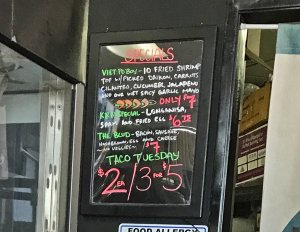 SPECIALS
VIET PO'BOY - 10 FRIED SHRIMP
TOP W/ PICKED DAIKON, CARROTS
CILANTRO, CUCUMBER, JALAPENO
AND OUR VIET SPICY GARLIC MAYO
ONLY $7
SPECIAL - LONGANISA,
SPAM AND FRIED EGG
THE BLVD - BACON, SAUSAGE,
HASHBROWN, EGG AND CHEESE
NO VEGGIES $7
TACO TUESDAY
$2 EA / 3 FOR $5
FOOD ALLERGY